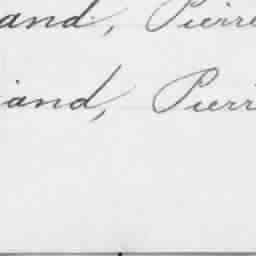 and, Pierre
iand, Pierr